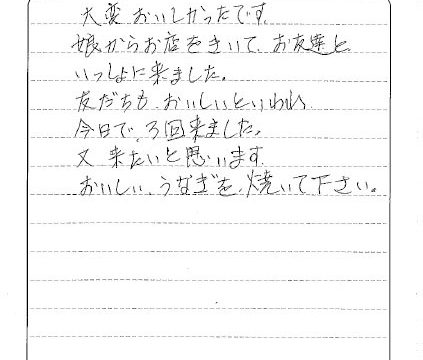 大変おいしかったです。
娘からお店をきいて、お友達と
いっしょに来ました。
友だちも、おいしいといわれ
今日で、3回来ました。
又来たいと思います。
おいしい、うなぎを、焼いて下さい。